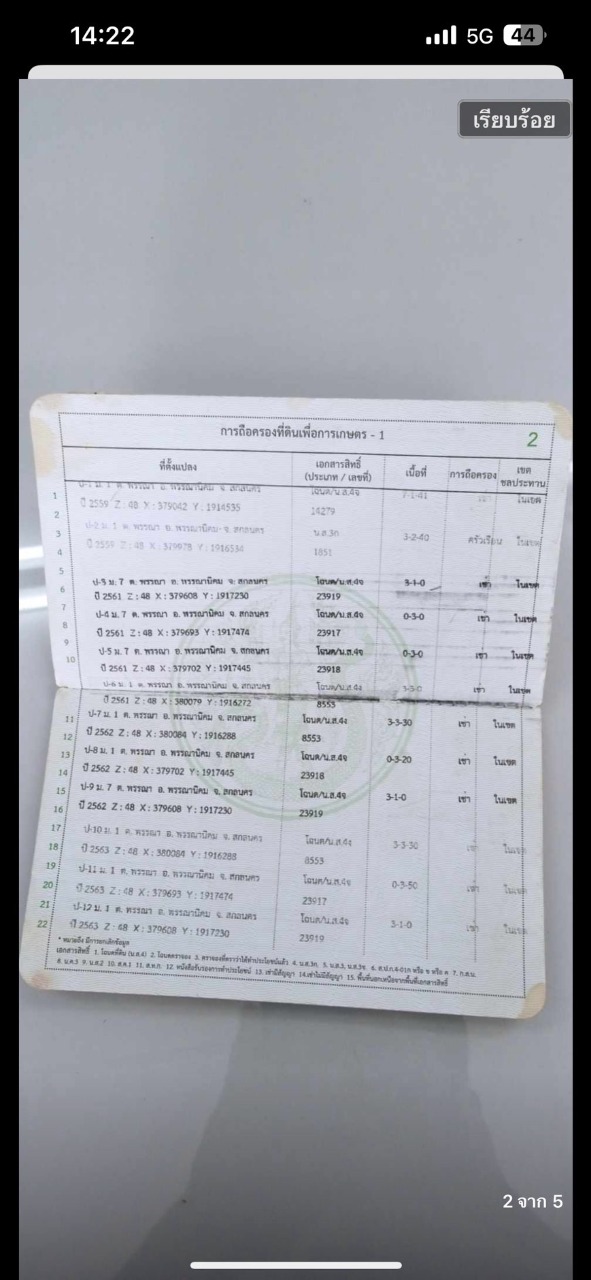 14:22
5G 44
เรียบร้อย
การถือครองที่ดินเพื่อการเกษตร - 1
2
ที่ตั้งแปลง เอกสารสิทธิ์ (ประเภท / เลขที่) เนื้อที่ การถือครอง เขตชลประทาน
1 ป-1 ม. 1 ต. พรรณา อ. พรรณานิคม จ. สกลนคร โฉนด/น.ส.4จ 7-1-41 เช่า ในเขต
2 ปี 2559 Z : 48 X : 379042 Y : 1914535 14279
3 ป-2 ม. 1 ต. พรรณา อ. พรรณานิคม จ. สกลนคร น.ส.3ก 3-2-40 ครัวเรือน ในเขต
4 ปี 2559 Z : 48 X : 379978 Y : 1916534 1851
5 ป-3 ม. 7 ต. พรรณา อ. พรรณานิคม จ. สกลนคร โฉนด/น.ส.4จ 3-1-0 เช่า ในเขต
6 ปี 2561 Z : 48 X : 379608 Y : 1917230 23919
7 ป-4 ม. 7 ต. พรรณา อ. พรรณานิคม จ. สกลนคร โฉนด/น.ส.4จ 0-3-0 เช่า ในเขต
8 ปี 2561 Z : 48 X : 379693 Y : 1917474 23917
9 ป-5 ม. 7 ต. พรรณา อ. พรรณานิคม จ. สกลนคร โฉนด/น.ส.4จ 0-3-0 เช่า ในเขต
10 ปี 2561 Z : 48 X : 379702 Y : 1917445 23918
ป-6 ม. 1 ต. พรรณา อ. พรรณานิคม จ. สกลนคร โฉนด/น.ส.4จ เช่า ในเขต
ปี 2561 Z : 48 X : 380079 Y : 1916272 8553
11 ป-7 ม. 1 ต. พรรณา อ. พรรณานิคม จ. สกลนคร โฉนด/น.ส.4จ 3-3-30 เช่า ในเขต
12 ปี 2562 Z : 48 X : 380084 Y : 1916288 8553
13 ป-8 ม. 1 ต. พรรณา อ. พรรณานิคม จ. สกลนคร โฉนด/น.ส.4จ 0-3-20 เช่า ในเขต
14 ปี 2562 Z : 48 X : 379702 Y : 1917445 23918
15 ป-9 ม. 7 ต. พรรณา อ. พรรณานิคม จ. สกลนคร โฉนด/น.ส.4จ 3-1-0 เช่า ในเขต
16 ปี 2562 Z : 48 X : 379608 Y : 1917230 23919
17 ป-10 ม. 1 ต. พรรณา อ. พรรณานิคม จ. สกลนคร โฉนด/น.ส.4จ 3-3-30 เช่า ในเขต
18 ปี 2563 Z : 48 X : 380084 Y : 1916288 8553
19 ป-11 ม. 1 ต. พรรณา อ. พรรณานิคม จ. สกลนคร โฉนด/น.ส.4จ 0-3-50 เช่า ในเขต
20 ปี 2563 Z : 48 X : 379693 Y : 1917474 23917
21 ป-12 ม. 1 ต. พรรณา อ. พรรณานิคม จ. สกลนคร โฉนด/น.ส.4จ 3-1-0 เช่า ในเขต
22 ปี 2563 Z : 48 X : 379608 Y : 1917230 23919
* หมายถึง มีการยกเลิกข้อมูล
เอกสารสิทธิ์ 1. โฉนดที่ดิน (น.ส.4) 2. โฉนดตราจอง 3. ตราจองที่ตราว่าได้ทำประโยชน์แล้ว 4. น.ส.3ก 5. น.ส.3, น.ส.3ข 6. ส.ป.ก.4-01ก หรือ ข หรือ ค 7. ก.ส.น.
8. น.ค.3 9. น.ส.2 10. ส.ค.1 11. ส.ท.ก. 12. หนังสือรับรองการทำประโยชน์ 13. เช่ามีสัญญา 14.เช่าไม่มีสัญญา 15. พื้นที่นอกเหนือจากพื้นที่เอกสารสิทธิ์
2 จาก 5